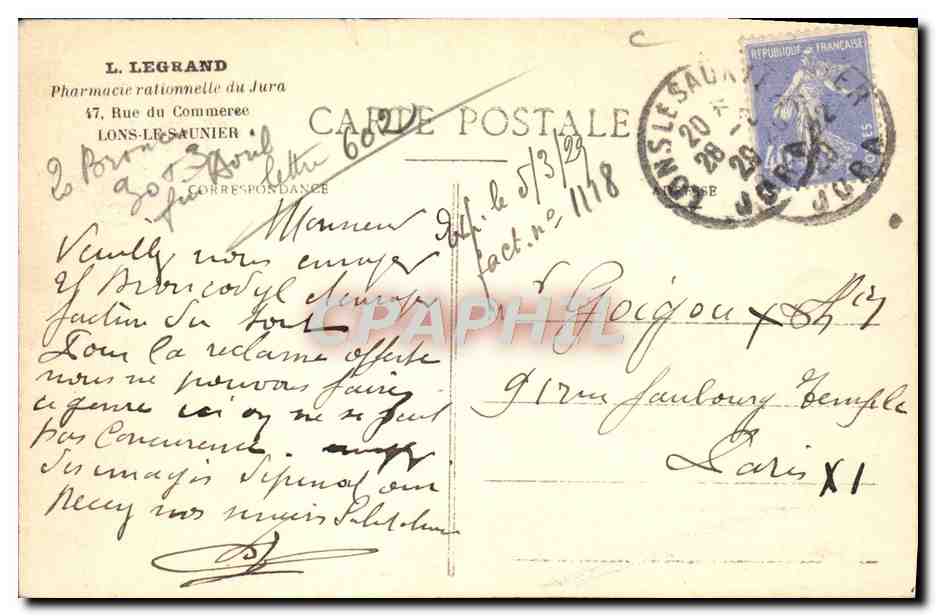 L. LEGRAND
Pharmacie rationnelle du Jura
47, Rue du Commerce
LONS-LE-SAUNIER
CARTE POSTALE
CORRESPONDANCE
ADRESSE
RÉPUBLIQUE FRANÇAISE
LONS LE SAUNIER
20
28
29
JURA
JURA
fin Avril
lettre 6020
le 5/3/29
fact. no 1118
Monsieur
Veuillez nous envoyer
Broncodyl
facture du tout
Pour la reclame offerte
nous ne pouvons faire
ce genre ici on ne se fait
pas concurrence.
des images d'epinal
Recev nos
Goigoux Phien
91 rue Faubourg Temple
Paris XI
CPAPHIL